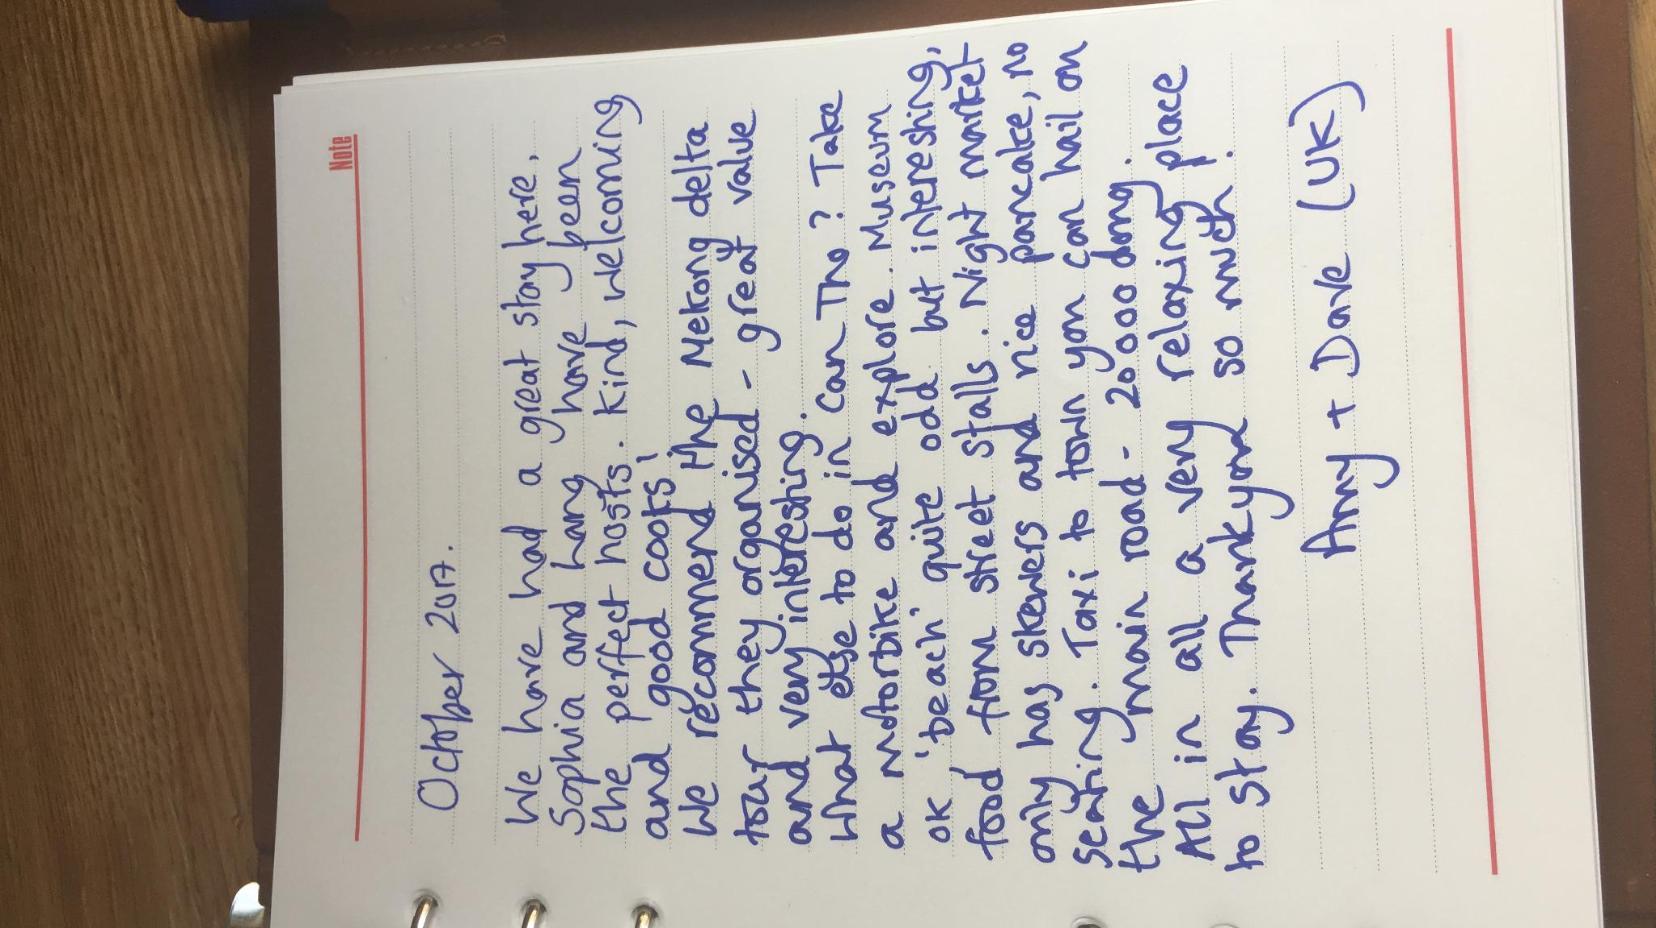 Note
October 2017.
We have had a great stay here.
Sophia and hang have been
the perfect hosts. Kind, welcoming
and good cooks!
We recommend the Mekong delta
tour they organised - great value
and very interesting.
What else to do in Can Tho? Take
a motorbike and explore. Museum
ok 'beach' quite odd but interesting,
food from street stalls. Night market
only has skewers and rice pancake, no
seating. Taxi to town you can hail on
the main road - 20000 dong.
All in all a very relaxing place
to stay. Thankyou so much!
Amy + Dave (UK)